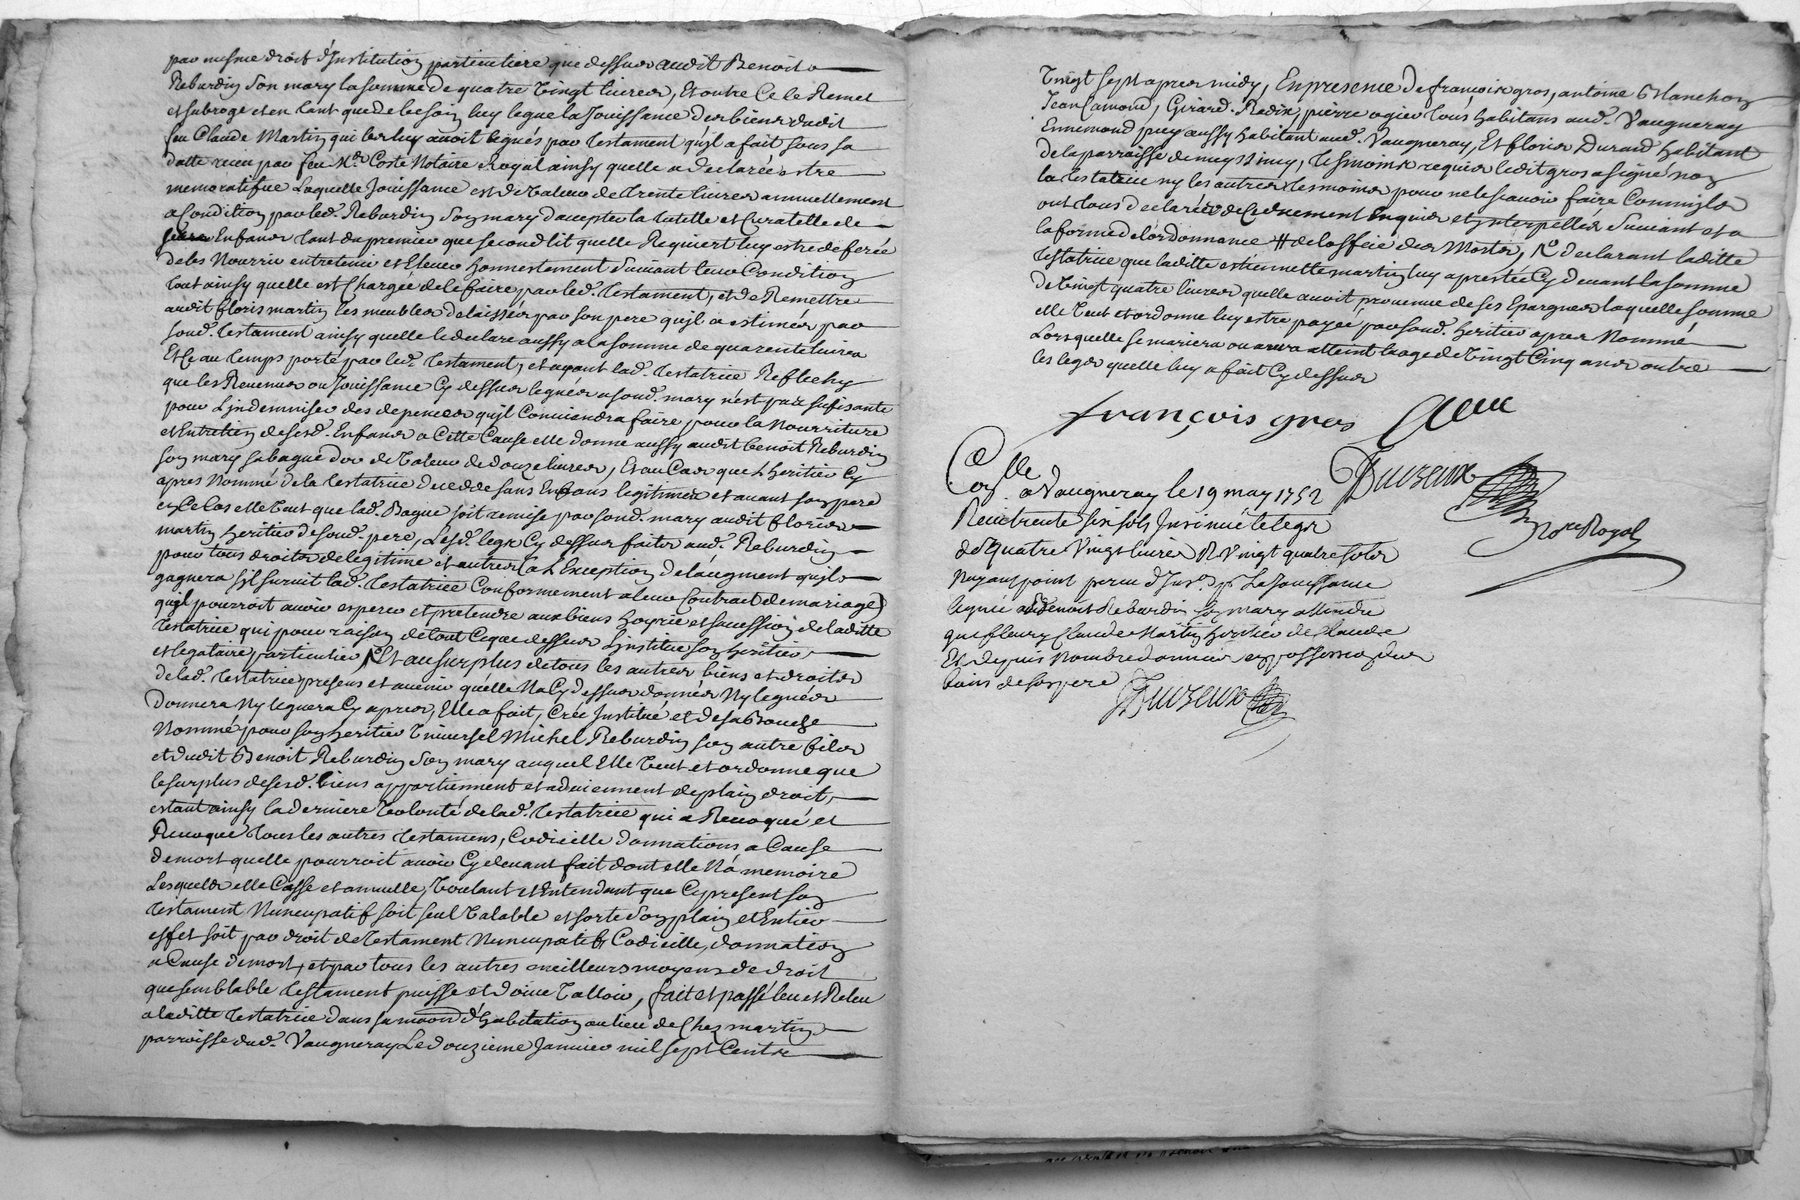 par mesme droit d'Institution particuliere que dessus audit Benoist
Reburdin son mary la somme de quatre Vingt livres, Et outre Ce le Remet
et subroge et en tant que de besoin luy legue la Jouissance des biens dudit
feu Claude Martin qui les luy avoit legués par testament qu'il a fait sous sa
datte receu par feu Me Coste Notaire Royal ainsy quelle a declarée estre
memoratifve Laquelle Jouissance est de Valeur de trente livres annuellement
a Condition par led. Reburdin son mary d'accepter la tutelle et Curatelle de
Enfans tant du premier que second lit quelle Requiert luy estre deferée
de les Nourrir entretenir et Elever honnestement suivant leur Condition
tout ainsy quelle est Chargée de le faire par led. testament, et de Remettre
audit floris martin les meubles delaissés par son pere qu'il a estimés par
sond. testament ainsy quelle le declare aussy a la somme de quarente livres
Et Ce au temps porté par led. testament, et ayant lad. testatrice Reflechy
que les Revenus ou Jouissance Cy dessus legués a sond. mary n'est pas sufisante
pour L'indemniser des depences qu'il Conviendra faire pour la Nourriture
et Entretien de sesd. Enfans a Cette Cause elle donne aussy audit benoist Reburdin
son mary sa bague d'or de Valeur de douze livres, Et au Cas que L'heritier Cy
apres Nommé de la testatrice decedde sans Enfans legitimes et avant son pere
en Ce Cas elle Veut que lad. Bague soit remise par sond. mary audit floris
martin heritier de sond. pere, Lesd. legs Cy dessus faits aud. Reburdin
pour tous droits de legitime et autres (a L'Exception de l'augment qu'il
gagnera s'il survit lad. testatrice Conformement a leur Contract de mariage)
qu'il pourroit avoir esperer et pretendre aux biens hoyrie et succession de laditte
testatrice qui pour raison de tout Ce que dessus L'institue son heritier
et legataire particulier, Et au surplus de tous les autres biens et droits
de lad. testatrice presens et avenir quelle Na Cy dessus donnés Ny legués
Donnera Ny leguera Cy apres, Elle a fait, Créé Institué et de sa Bouche
Nommé pour son heritier Universel Michel Reburdin son autre fils
et dudit Benoist Reburdin son mary auquel Elle Veut et ordonne que
le surplus de sesd. biens appartiennent et adviennent de plain droit,
estant ainsy la derniere Volonté de lad. testatrice qui a Revoqué et
Revoque tous les autres testamens, Codicille donnations a Cause
de mort quelle pourroit avoir Cy devant fait dont elle Na memoire
Lesquels elle Casse et annulle, Voulant et Entendant que Cy present son
testament Nuncupatif soit seul Valable et sorte son plain et Entier
effet soit par droit de testament Nuncupatif, Codicille, donnation
a Cause de mort, et par tous les autres meilleurs moyens de droit
que semblable testament puisse et doive Valloir, fait et passé leu et Releu
a laditte testatrice dans sa maison d'habitation au lieu de Chez martin
parroisse dud. Vaugneray Le douzieme Janvier mil sept Cents
Vingt sept apres midy, En presence de françois gros, antoine Blanchon
Jean Camoud, Girard Redix, pierre ogier tous habitans aud. Vaugneray
Ennemond puy aussy habitant aud. Vaugneray, Et floris Durand habitant
de la parroisse de meyssimey, tesmoins requis ledit gros a signé non
la testatrice ny les autres tesmoins pour ne le scavoir faire Comm'ils
ont tous declarés de Ce deuement Enquis et Interpellés suivant et a
la forme de l'ordonnance # de l'office des Mortes, declarant laditte
testatrice que laditte estiennette martin luy a prestée Cy devant la somme
de Vingt quatre livres quelle avoit provenue de ses Epargnes laquelle somme
elle Veut et ordonne luy estre payée par sond. heritier apres Nommé
Lorsquelle se mariera ou aura atteint laage de Vingt Cinq ans outre
les legs quelle luy a fait Cy dessus
françois gros
Conlle a Vaugneray le 19 may 1752
Receu trente six sols Insinué le legs
de quatre Vingt livres R Vingt quatre sols
Nayant point perceu d'Ins.on pr La Jouissance
leguée a Benoist Reburdin son mary attendu
que fleury Claude Martin heritier de Claude
Est depuis Nombre dannées en possession des
biens de son pere
Duvzeux
Nore Royal
Duvzeux